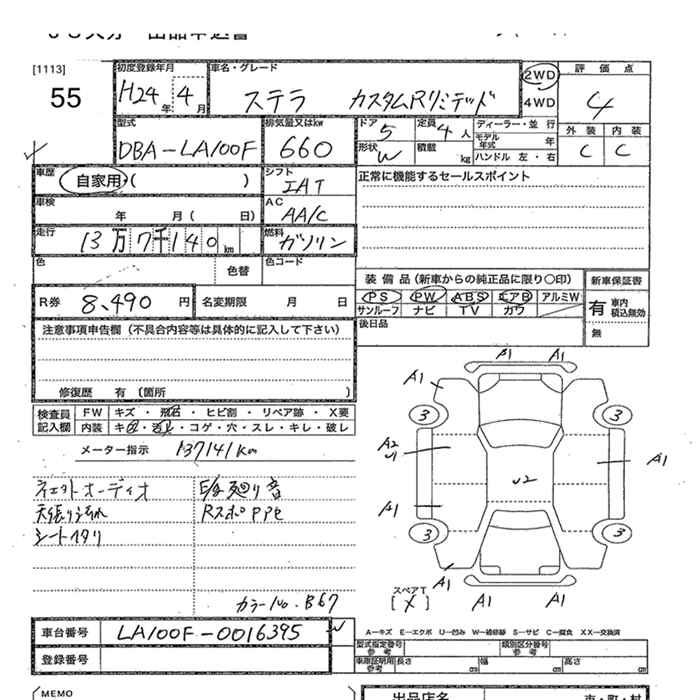 [1113]
55
初度登録年月
H24年 4月
車名・グレード
ステラ カスタムRリミテッド
2WD
4WD
評価点
4
外装 内装
C C
型式
DBA-LA100F
排気量又はkw
660
ドア
5
定員
4人
形状
W
積載
kg
ディーラー・並行
モデル年式 年
ハンドル 左・右
車歴
自家用 ( )
シフト
IAT
正常に機能するセールスポイント
車検
年 月( 日)
AC
AA/C
走行
13万7千140km
燃料
ガソリン
色
色替
色コード
装備品(新車からの純正品に限り〇印)
PS PW ABS エアB アルミW
サンルーフ ナビ TV カワ
新車保証書
有 車内積込無効
無
R券
8,490円
名変期限 月 日
後日品
注意事項申告欄(不具合内容等は具体的に記入して下さい)
修復歴 有 〔箇所 〕
検査員記入欄
FW キズ・飛石・ヒビ割・リペア跡・X要
内装 キズ・汚れ・コゲ・穴・スレ・キレ・破レ
メーター指示 137141Km
天張り汚れ
シート
廻り音
カラーNo. B67
A1 A1
A1
3 3
A2
U1
A1
U2
A1
3 3
A1
A1 A1
スペアT
[X]
車台番号 LA100F-0016395
登録番号
A-キズ E-エクボ U-凹み W-補修跡 S-サビ C-腐食 XX-交換済
型式指定番号 参考
類別区分番号 参考
車庫証明用参考 長さ cm 幅 cm 高さ cm
MEMO
出品店名
市・町・村